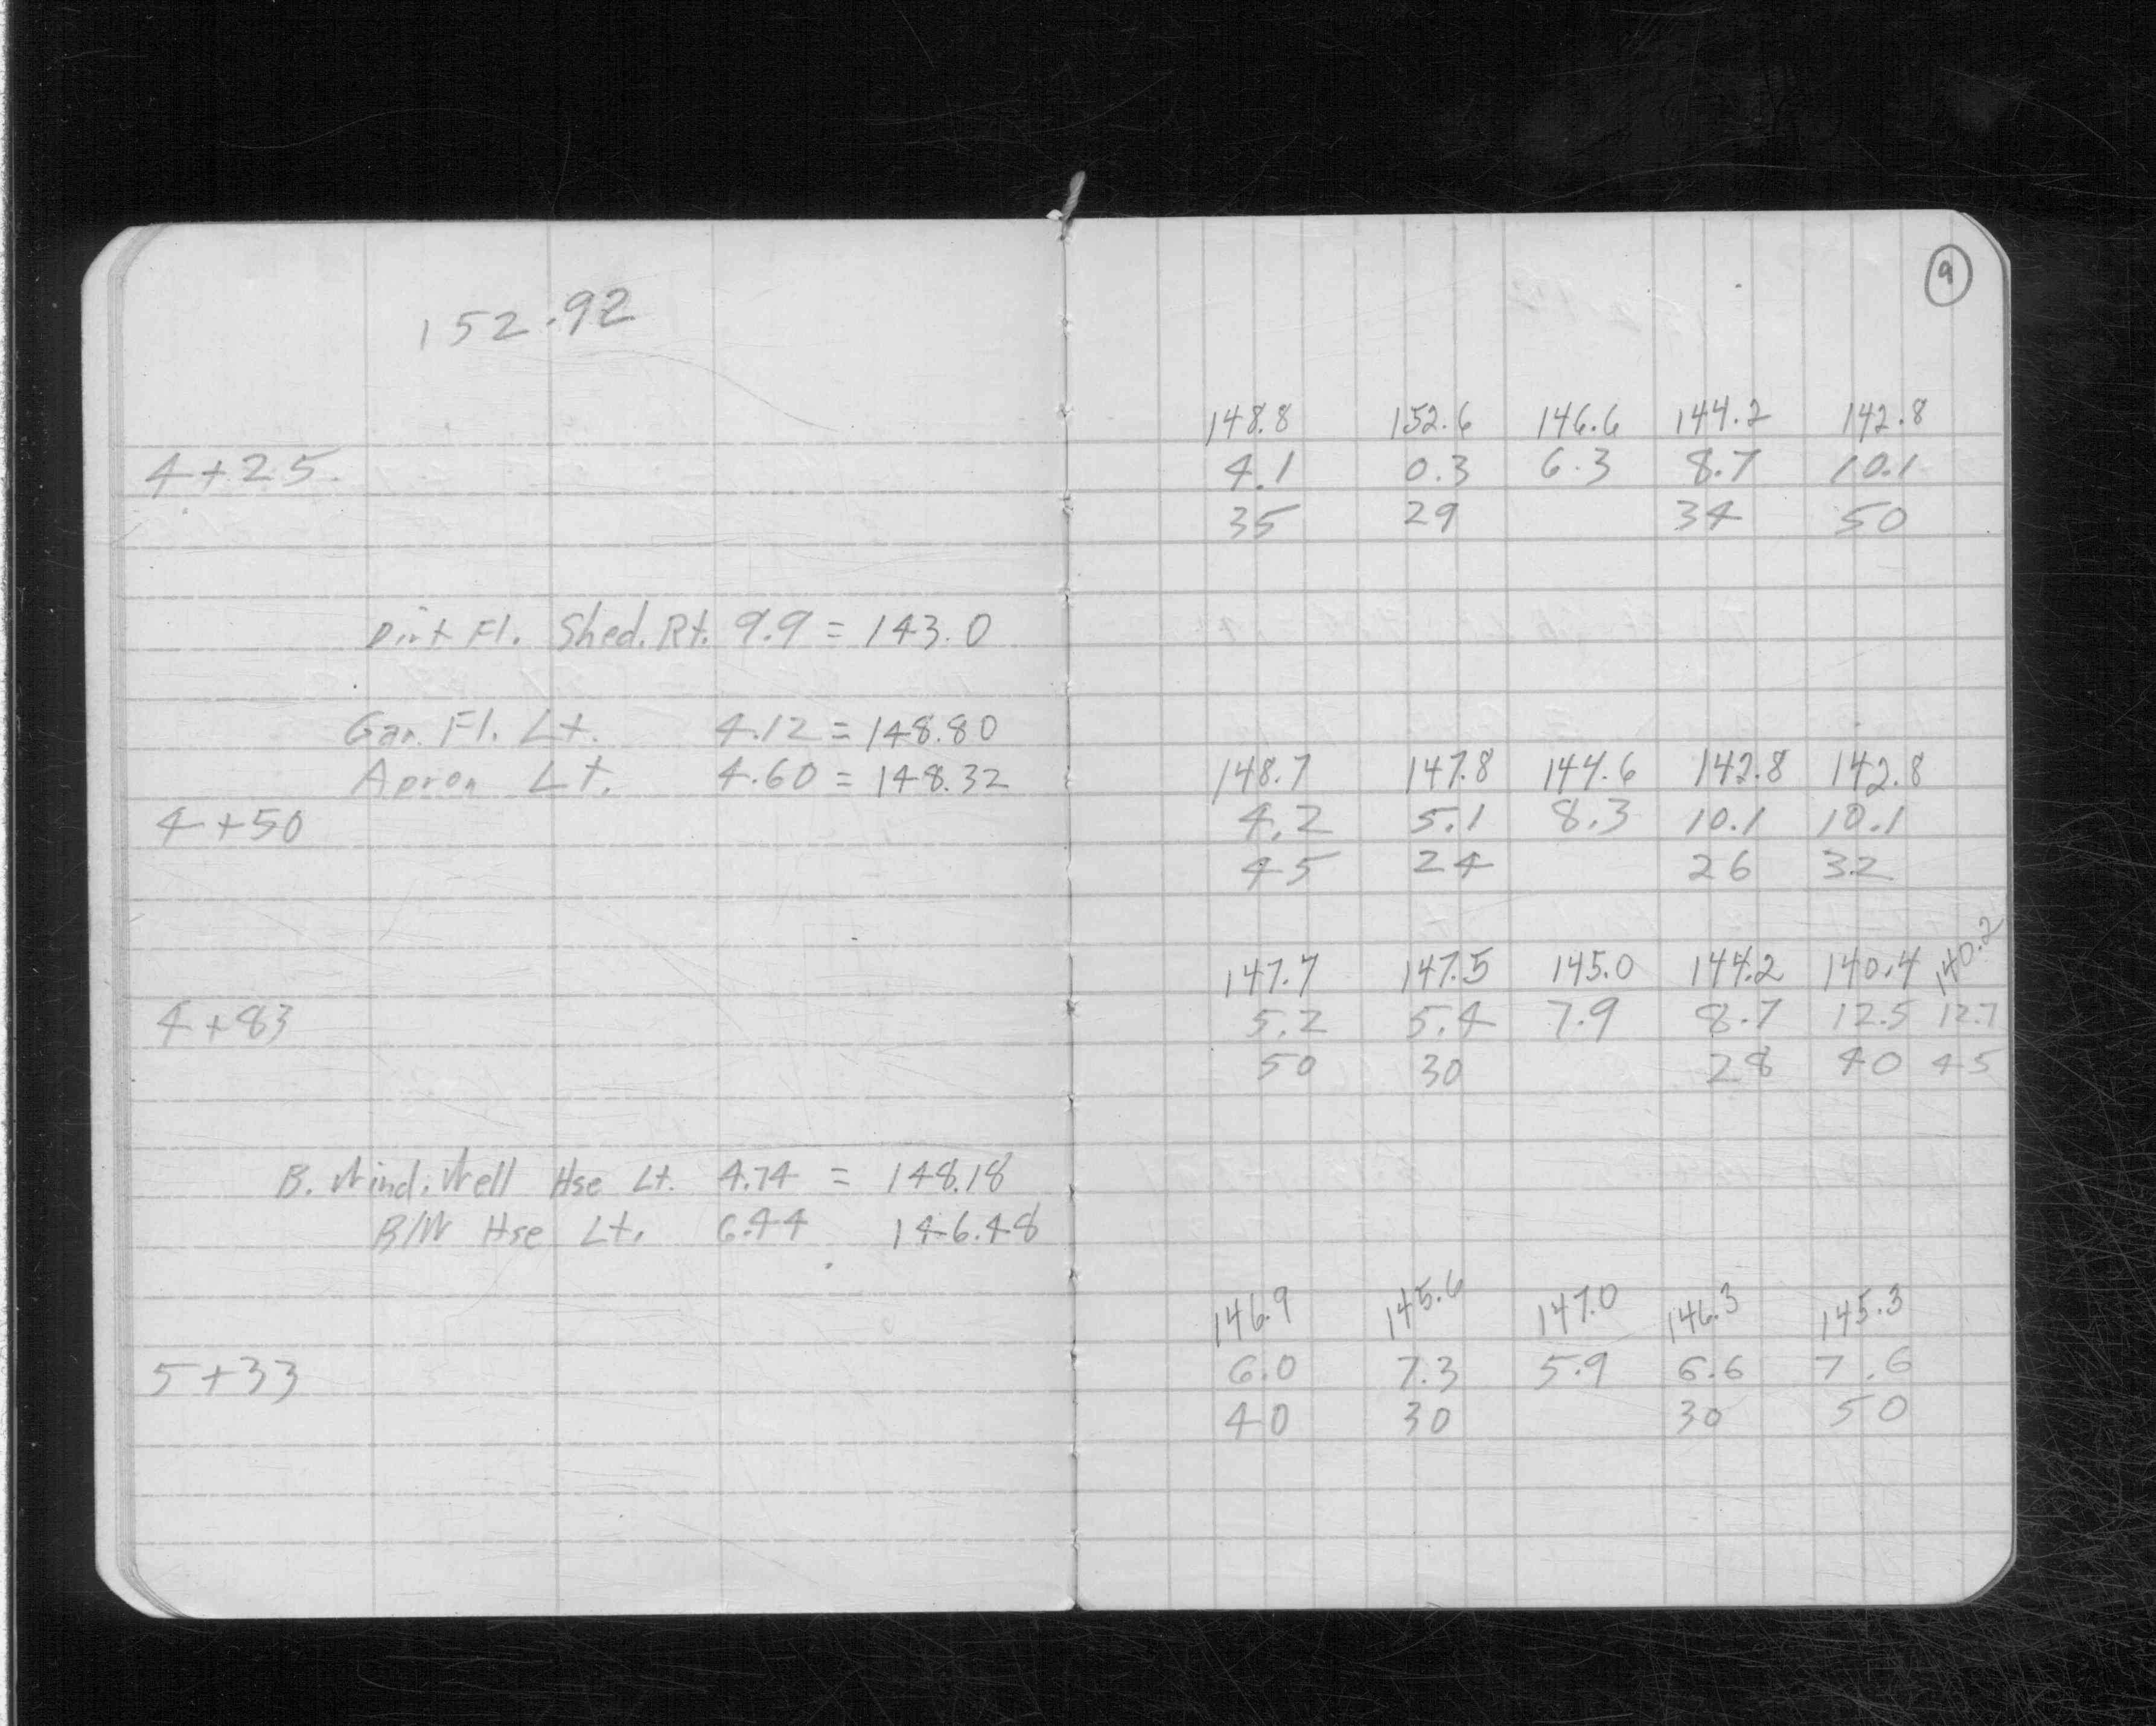 152.92
4+25.
Dirt Fl. Shed. Rt. 9.9 = 143.0
Gar. Fl. Lt. 4.12 = 148.80
Apron Lt. 4.60 = 148.32
4+50
4+83
B. Wind. Well Hse Lt. 4.74 = 148.18
B/W Hse Lt. 6.44 146.48
5+33
9
148.8 152.6 146.6 144.2 142.8
4.1 0.3 6.3 8.7 10.1
35 29 34 50
148.7 147.8 144.6 142.8 142.8
4.2 5.1 8.3 10.1 10.1
45 24 26 32
147.7 147.5 145.0 144.2 140.4 140.2
5.2 5.4 7.9 8.7 12.5 12.7
50 30 28 40 45
146.9 145.6 147.0 146.3 145.3
6.0 7.3 5.9 6.6 7.6
40 30 30 50